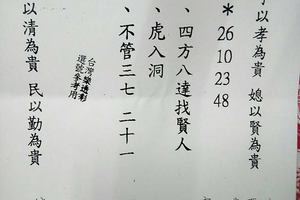 子以孝為貴 媳以賢為貴
* 26 10 23 48
、四方八達找賢人
、虎入洞
、不管三七 二十一
台灣樂透彩
選號參考用
以清為貴 民以勤為貴